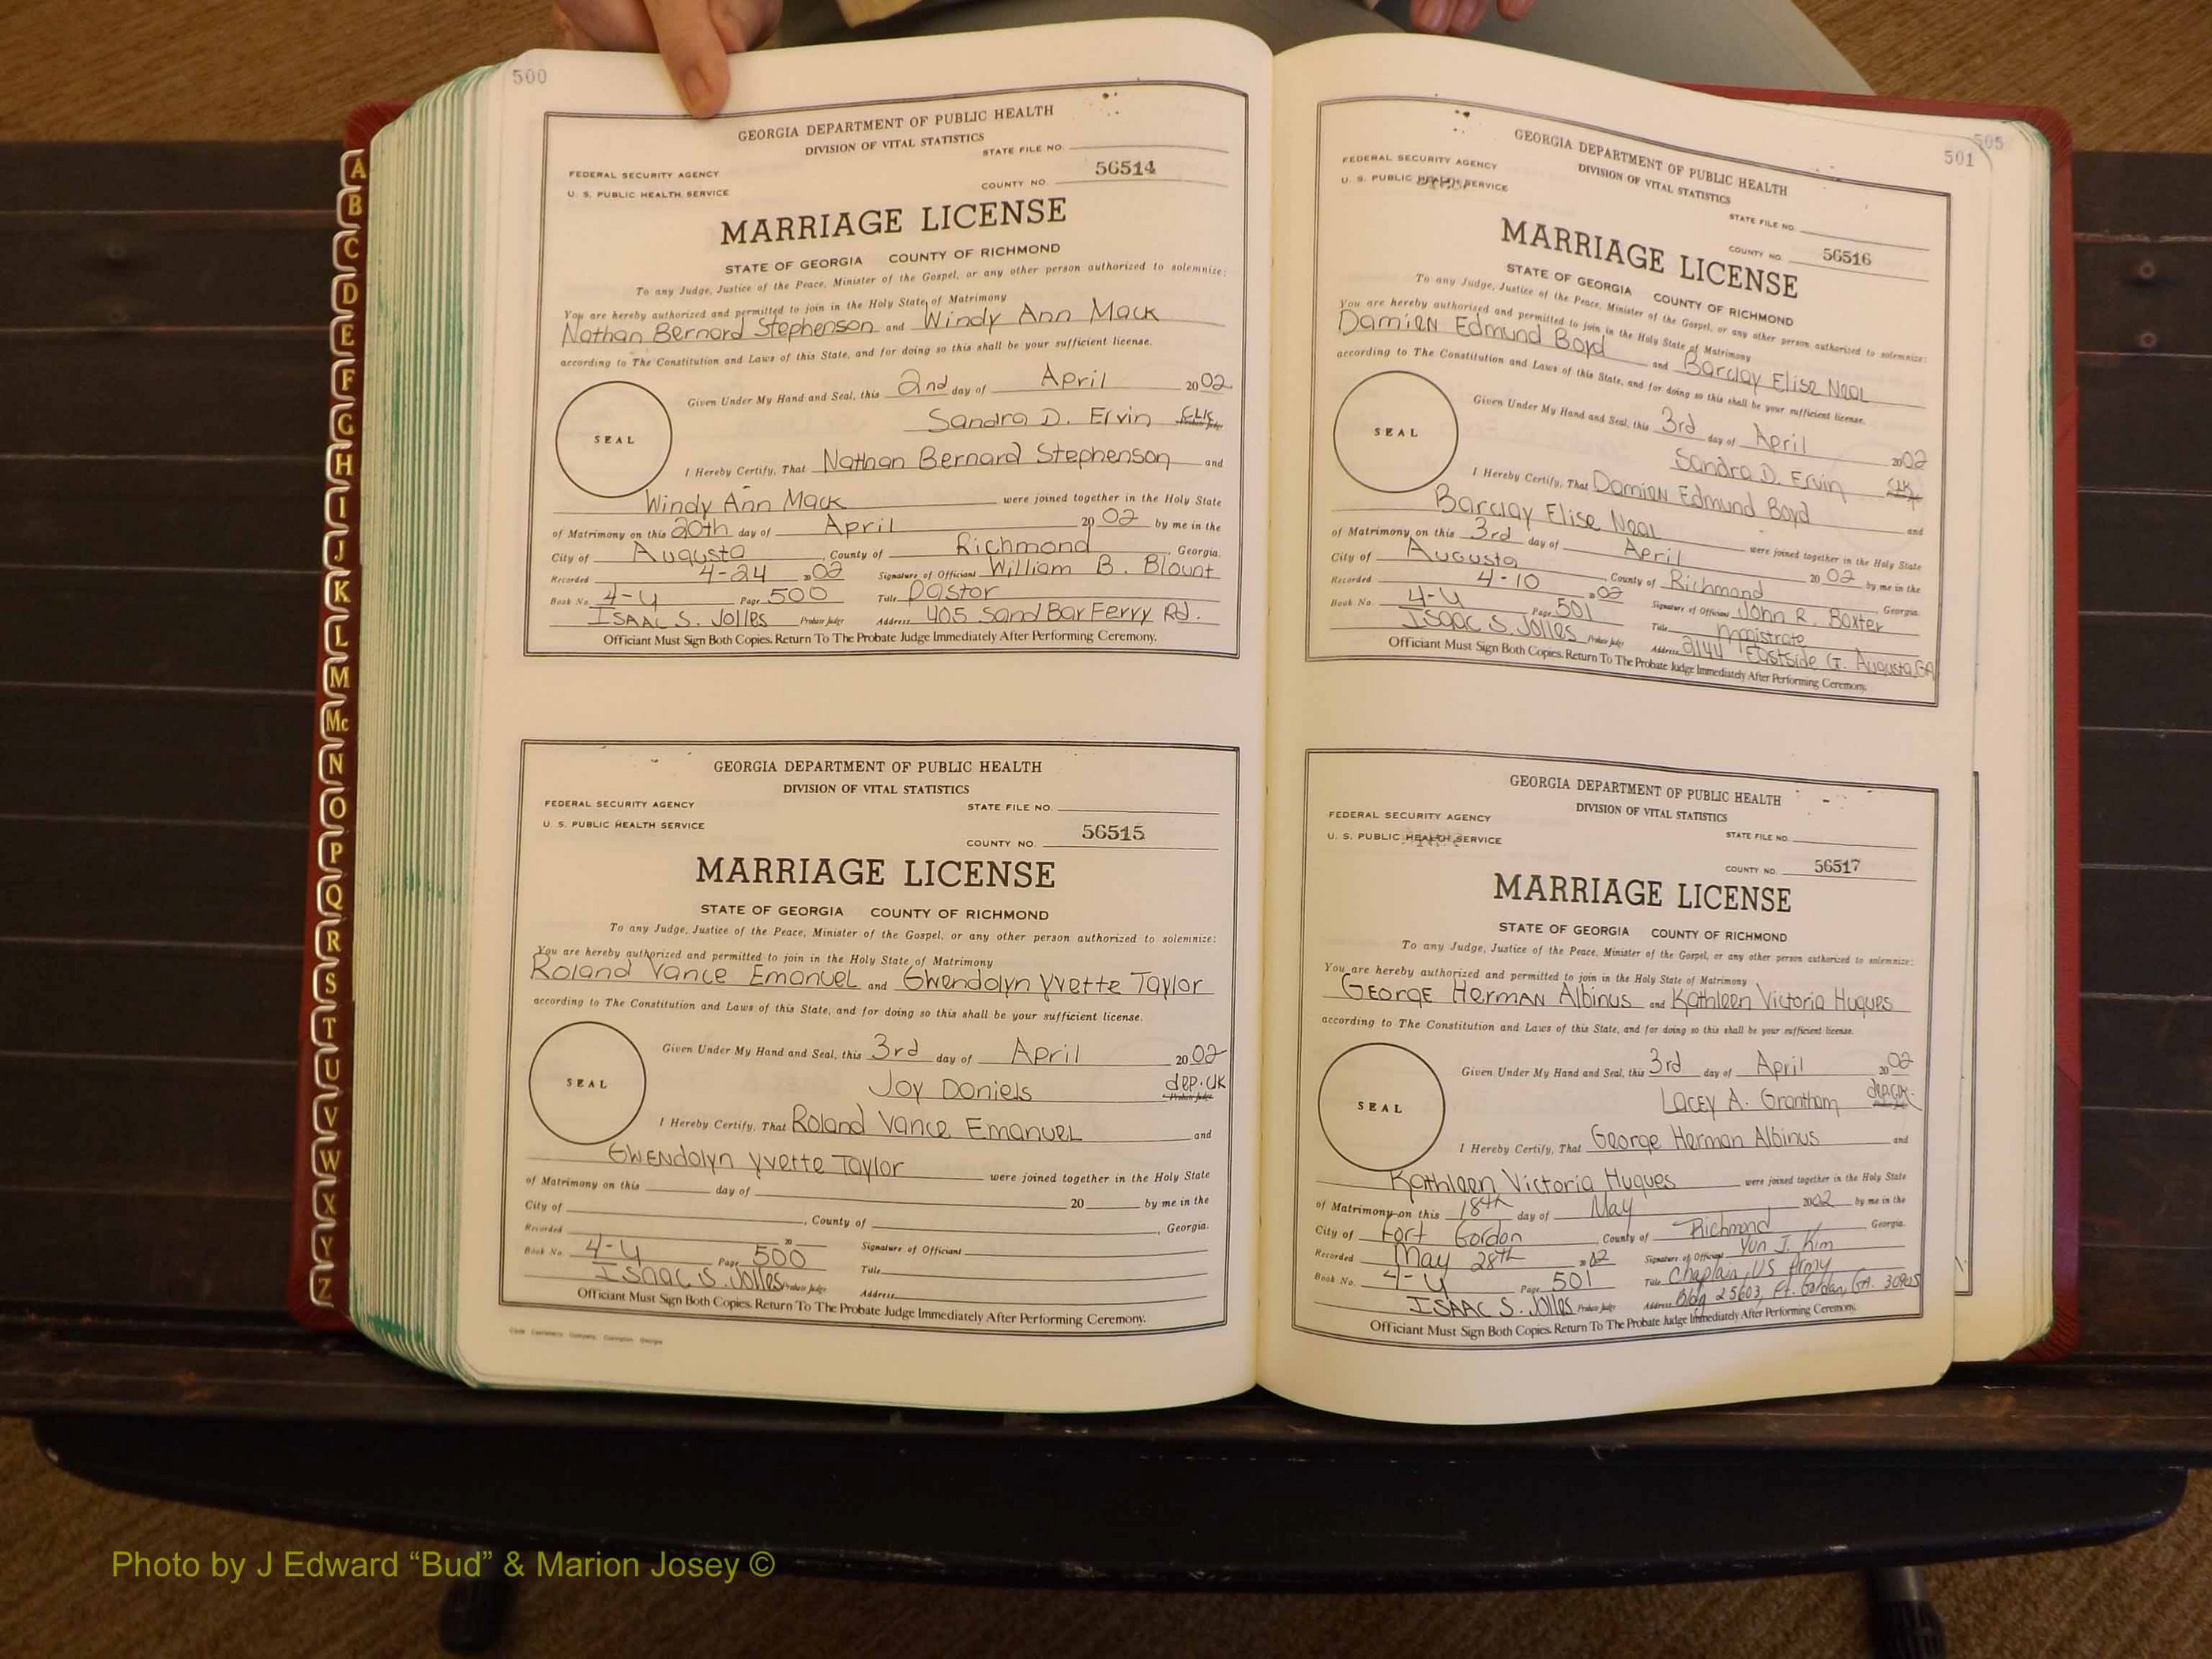 500
GEORGIA DEPARTMENT OF PUBLIC HEALTH
DIVISION OF VITAL STATISTICS
STATE FILE NO.
FEDERAL SECURITY AGENCY
U. S. PUBLIC HEALTH SERVICE
COUNTY NO. 56514
MARRIAGE LICENSE
STATE OF GEORGIA COUNTY OF RICHMOND
To any Judge, Justice of the Peace, Minister of the Gospel, or any other person authorized to solemnize:
You are hereby authorized and permitted to join in the Holy State of Matrimony
Nathan Bernard Stephenson and Windy Ann Mack
according to The Constitution and Laws of this State, and for doing so this shall be your sufficient license.
Given Under My Hand and Seal, this 2nd day of April 2002
Sandra D. Ervin CLK
Probate Judge
SEAL
I Hereby Certify, That Nathan Bernard Stephenson and
Windy Ann Mack were joined together in the Holy State
of Matrimony on this 20th day of April 20 02 by me in the
City of Augusta, County of Richmond, Georgia.
Recorded 4-24 20 02 Signature of Officiant William B. Blount
Book No. 4-U Page 500 Title Pastor
Isaac S. Jolles Probate Judge Address 405 Sand Bar Ferry Rd.
Officiant Must Sign Both Copies. Return To The Probate Judge Immediately After Performing Ceremony.
GEORGIA DEPARTMENT OF PUBLIC HEALTH
DIVISION OF VITAL STATISTICS
FEDERAL SECURITY AGENCY
STATE FILE NO.
U. S. PUBLIC HEALTH SERVICE
COUNTY NO. 56515
MARRIAGE LICENSE
STATE OF GEORGIA COUNTY OF RICHMOND
To any Judge, Justice of the Peace, Minister of the Gospel, or any other person authorized to solemnize:
You are hereby authorized and permitted to join in the Holy State of Matrimony
Roland Vance Emanuel and Gwendolyn Yvette Taylor
according to The Constitution and Laws of this State, and for doing so this shall be your sufficient license.
Given Under My Hand and Seal, this 3rd day of April 2002
Joy Daniels dep. clk
Probate Judge
SEAL
I Hereby Certify, That Roland Vance Emanuel and
Gwendolyn Yvette Taylor were joined together in the Holy State
of Matrimony on this day of 20 by me in the
City of , County of , Georgia.
Recorded 20 Signature of Officiant
Book No. 4-U Page 500 Title
Isaac S. Jolles Probate Judge Address
Officiant Must Sign Both Copies. Return To The Probate Judge Immediately After Performing Ceremony.
505
501
GEORGIA DEPARTMENT OF PUBLIC HEALTH
DIVISION OF VITAL STATISTICS
FEDERAL SECURITY AGENCY
U. S. PUBLIC HEALTH SERVICE
STATE FILE NO.
COUNTY NO. 56516
MARRIAGE LICENSE
STATE OF GEORGIA COUNTY OF RICHMOND
To any Judge, Justice of the Peace, Minister of the Gospel, or any other person authorized to solemnize:
You are hereby authorized and permitted to join in the Holy State of Matrimony
Damien Edmund Boyd and Barclay Elise Neal
according to The Constitution and Laws of this State, and for doing so this shall be your sufficient license.
Given Under My Hand and Seal, this 3rd day of April 2002
Sandra D. Ervin Clk
SEAL
I Hereby Certify, That Damien Edmund Boyd and
Barclay Elise Neal were joined together in the Holy State
of Matrimony on this 3rd day of April 20 02 by me in the
City of Augusta, County of Richmond, Georgia.
Recorded 4-10 20 02 Signature of Officiant John R. Baxter
Book No. 4-U Page 501 Title Magistrate
Isaac S. Jolles Probate Judge Address 2144 Eastside Ct. Augusta, GA
Officiant Must Sign Both Copies. Return To The Probate Judge Immediately After Performing Ceremony.
GEORGIA DEPARTMENT OF PUBLIC HEALTH
DIVISION OF VITAL STATISTICS
FEDERAL SECURITY AGENCY
U. S. PUBLIC HEALTH SERVICE
STATE FILE NO.
COUNTY NO. 56517
MARRIAGE LICENSE
STATE OF GEORGIA COUNTY OF RICHMOND
To any Judge, Justice of the Peace, Minister of the Gospel, or any other person authorized to solemnize:
You are hereby authorized and permitted to join in the Holy State of Matrimony
George Herman Albinus and Kathleen Victoria Hugues
according to The Constitution and Laws of this State, and for doing so this shall be your sufficient license.
Given Under My Hand and Seal, this 3rd day of April 2002
Lacey A. Grantham dep. clk.
SEAL
I Hereby Certify, That George Herman Albinus and
Kathleen Victoria Hugues were joined together in the Holy State
of Matrimony on this 18th day of May 2002 by me in the
City of Fort Gordon, County of Richmond, Georgia.
Recorded May 28th 20 02 Signature of Officiant Yun J. Kim
Book No. 4-U Page 501 Title Chaplain, US Army
Isaac S. Jolles Probate Judge Address Bldg 25603, Ft. Gordon, GA. 30905
Officiant Must Sign Both Copies. Return To The Probate Judge Immediately After Performing Ceremony.
A
B
C
D
E
F
G
H
I
J
K
L
M
Mc
N
O
P
Q
R
S
T
U
V
W
X
Y
Z
Photo by J Edward “Bud” & Marion Josey ©